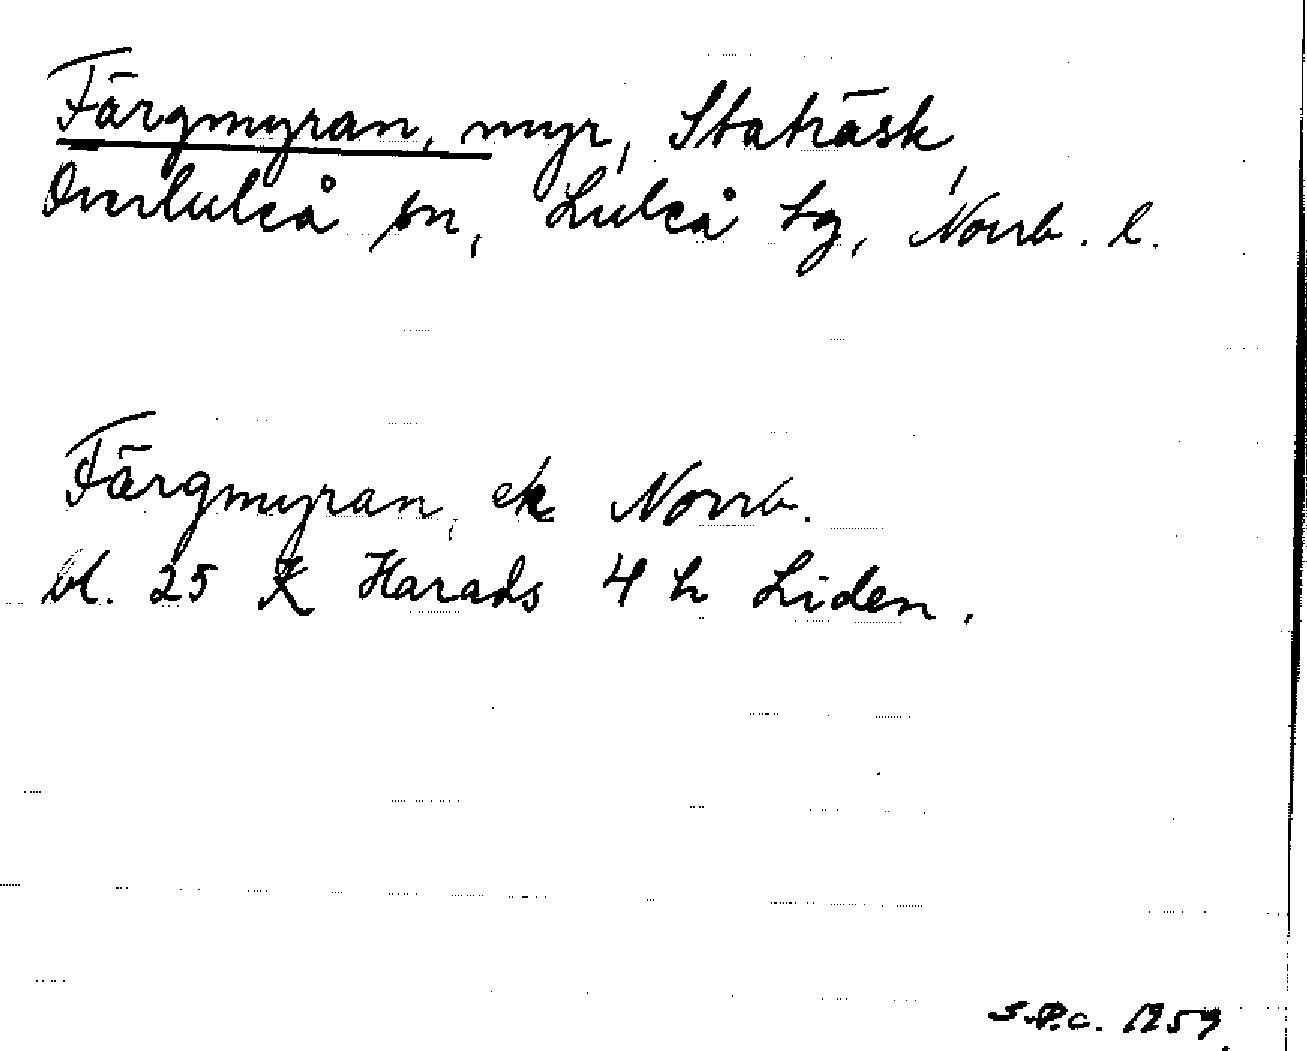 Färgmyran, myr, Statråsk,
Överluleå sn, Luleå tg, Norrb. l.
Färgmyran, ek Norrb.
bl. 25 K Harads 4 h Liden.
S.P.C. 1959.